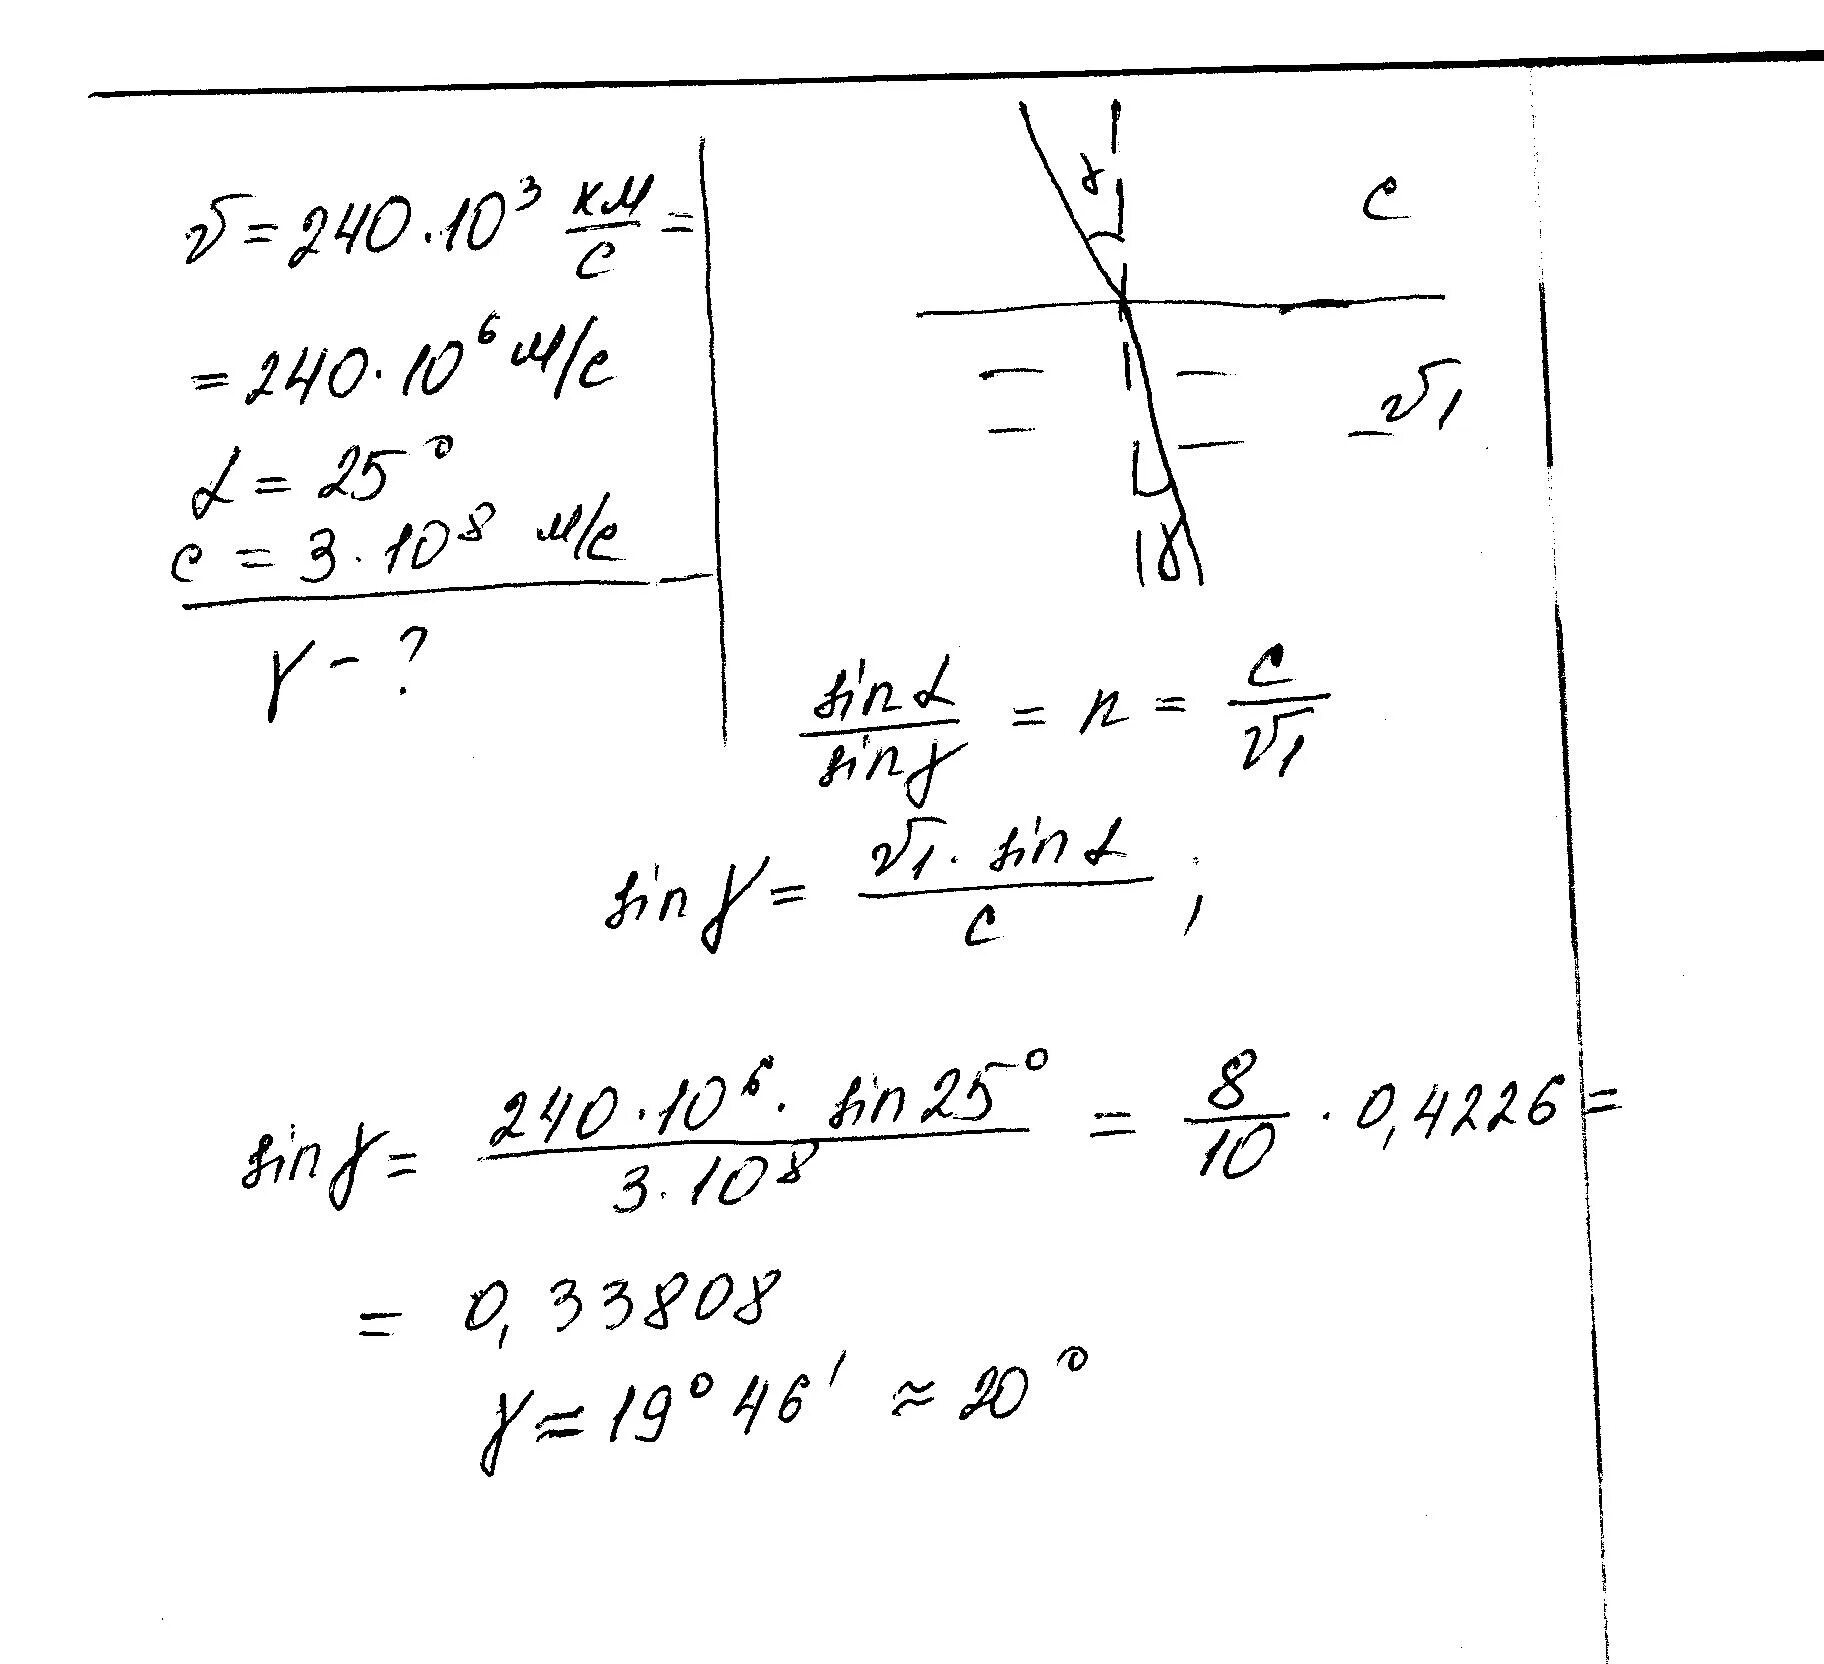 v = 240 · 10³ км/с =
= 240 · 10⁶ м/с
α = 25°
c = 3 · 10⁸ м/с
γ - ?
α
c
v₁
γ
sin α / sin γ = n = c / v₁
sin γ = v₁ · sin α / c ;
sin γ = 240 · 10⁶ · sin 25° / 3 · 10⁸ = 8/10 · 0,4226 =
= 0,33808
γ ≈ 19° 46′ ≈ 20°